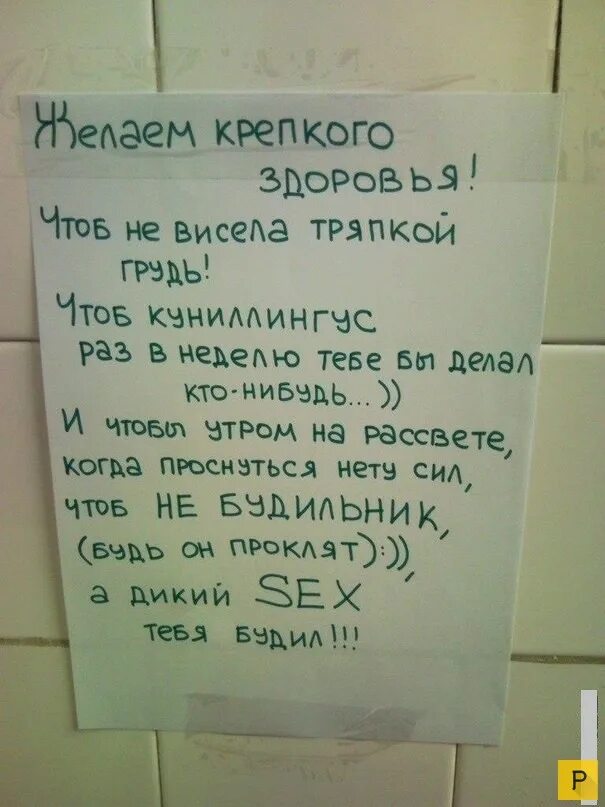 Желаем крепкого
здоровья!
Чтоб не висела тряпкой
грудь!
Чтоб куниллингус
раз в неделю тебе бы делал
кто-нибудь... ))
И чтобы утром на рассвете,
когда проснуться нету сил,
чтоб НЕ БУДИЛЬНИК,
(будь он проклят):)),
а дикий SEX
тебя будил!!!
P